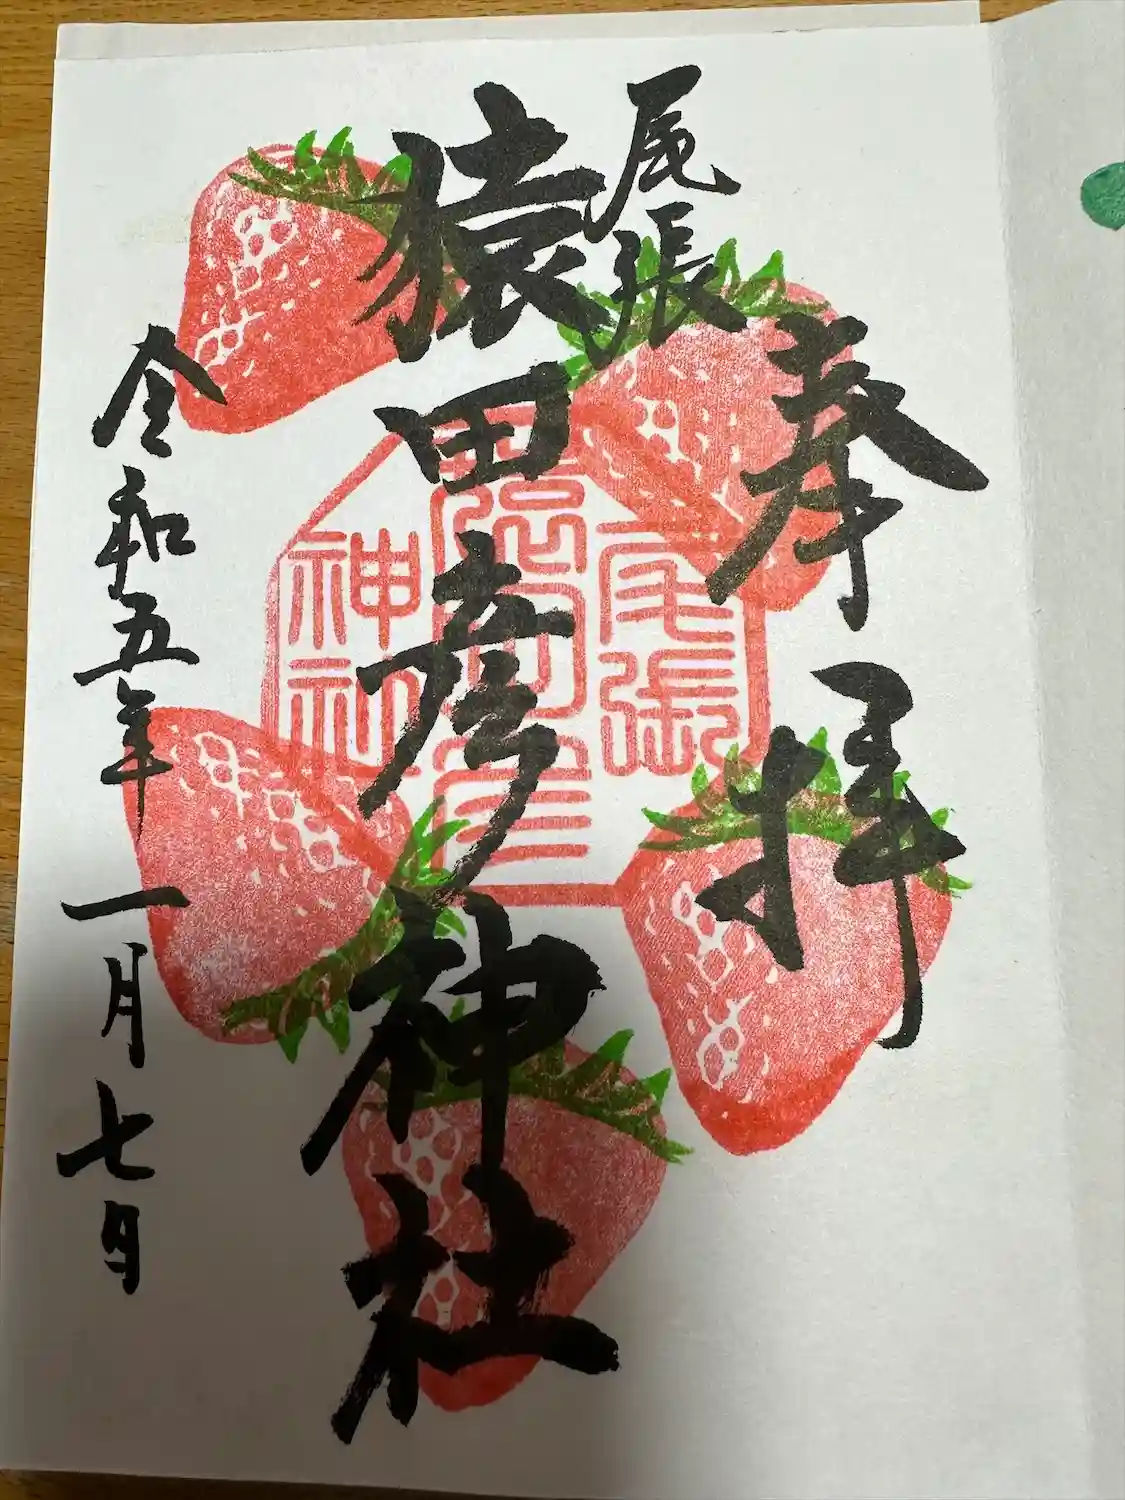 奉拝
尾張
猿田彦神社
尾張
猿田彦
神社
令和五年一月七日